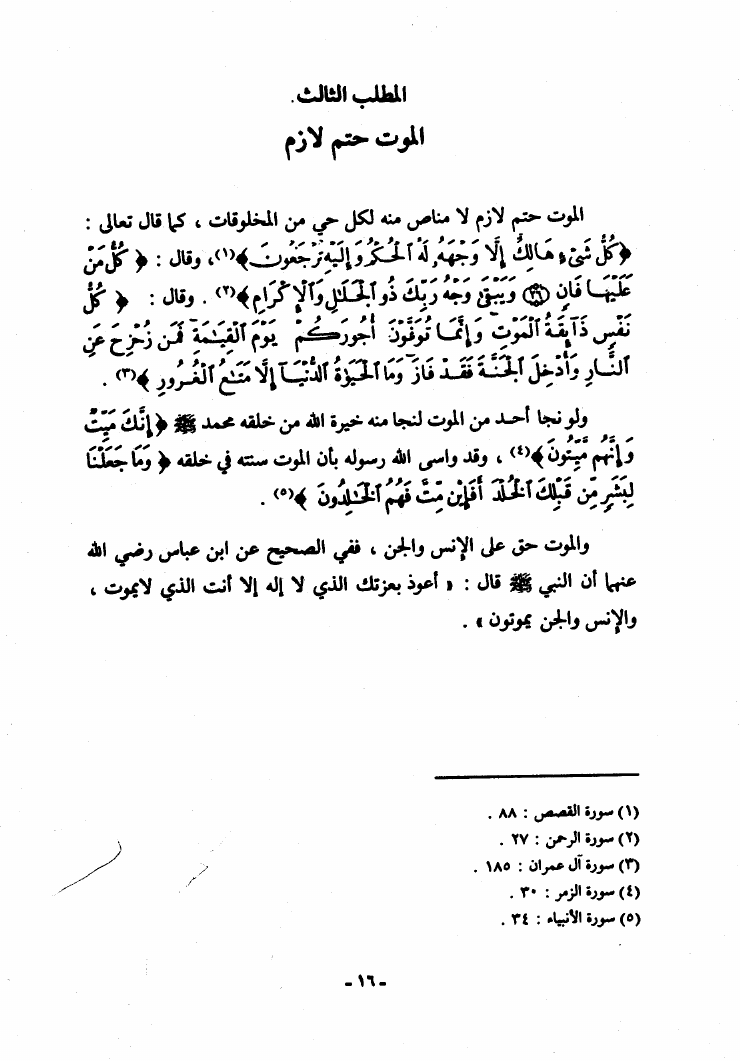 المطلب الثالث.
الموت حتم لازم
الموت حتم لازم لا مناص منه لكل حي من المخلوقات ، كما قال تعالى :
﴿كُلُّ شَىْءٍ هَالِكٌ إِلَّا وَجْهَهُۥ لَهُ ٱلْحُكْمُ وَإِلَيْهِ تُرْجَعُونَ﴾(١)، وقال : ﴿ كُلُّ مَنْ
عَلَيْهَا فَانٍ ﴿٢٦﴾ وَيَبْقَىٰ وَجْهُ رَبِّكَ ذُو ٱلْجَلَٰلِ وَٱلْإِكْرَامِ﴾(٢) . وقال : ﴿ كُلُّ
نَفْسٍ ذَآئِقَةُ ٱلْمَوْتِ وَإِنَّمَا تُوَفَّوْنَ أُجُورَكُمْ يَوْمَ ٱلْقِيَٰمَةِ فَمَن زُحْزِحَ عَنِ
ٱلنَّارِ وَأُدْخِلَ ٱلْجَنَّةَ فَقَدْ فَازَ وَمَا ٱلْحَيَوٰةُ ٱلدُّنْيَآ إِلَّا مَتَٰعُ ٱلْغُرُورِ ﴾(٣) .
ولو نجا أحد من الموت لنجا منه خيرة الله من خلقه محمد ﷺ ﴿إِنَّكَ مَيِّتٌ
وَإِنَّهُم مَّيِّتُونَ﴾(٤) ، وقد واسى الله رسوله بأن الموت سنته في خلقه ﴿ وَمَا جَعَلْنَا
لِبَشَرٍ مِّن قَبْلِكَ ٱلْخُلْدَ أَفَإِيْن مِّتَّ فَهُمُ ٱلْخَٰلِدُونَ ﴾(٥) .
والموت حق على الإنس والجن ، ففي الصحيح عن ابن عباس رضي الله
عنهما أن النبي ﷺ قال : « أعوذ بعزتك الذي لا إله إلا أنت الذي لايموت ،
والإنس والجن يموتون » .
(١) سورة القصص : ٨٨ .
(٢) سورة الرحمن : ٢٧ .
(٣) سورة آل عمران : ١٨٥ .
(٤) سورة الزمر : ٣٠ .
(٥) سورة الأنبياء : ٣٤ .
- ١٦ -